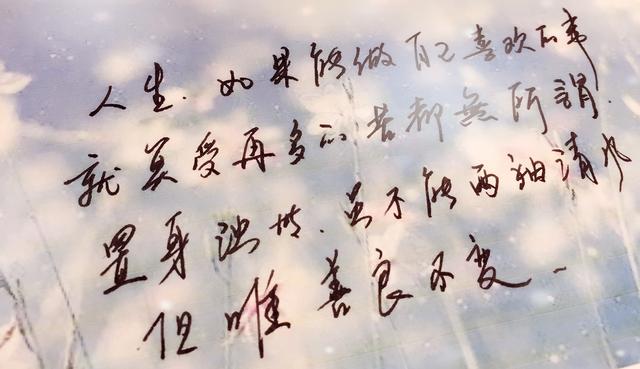 人生.如果能做自己喜欢的事
就算受再多的苦都無所謂.
置身浊世.虽不能两袖清风
但唯善良不变~